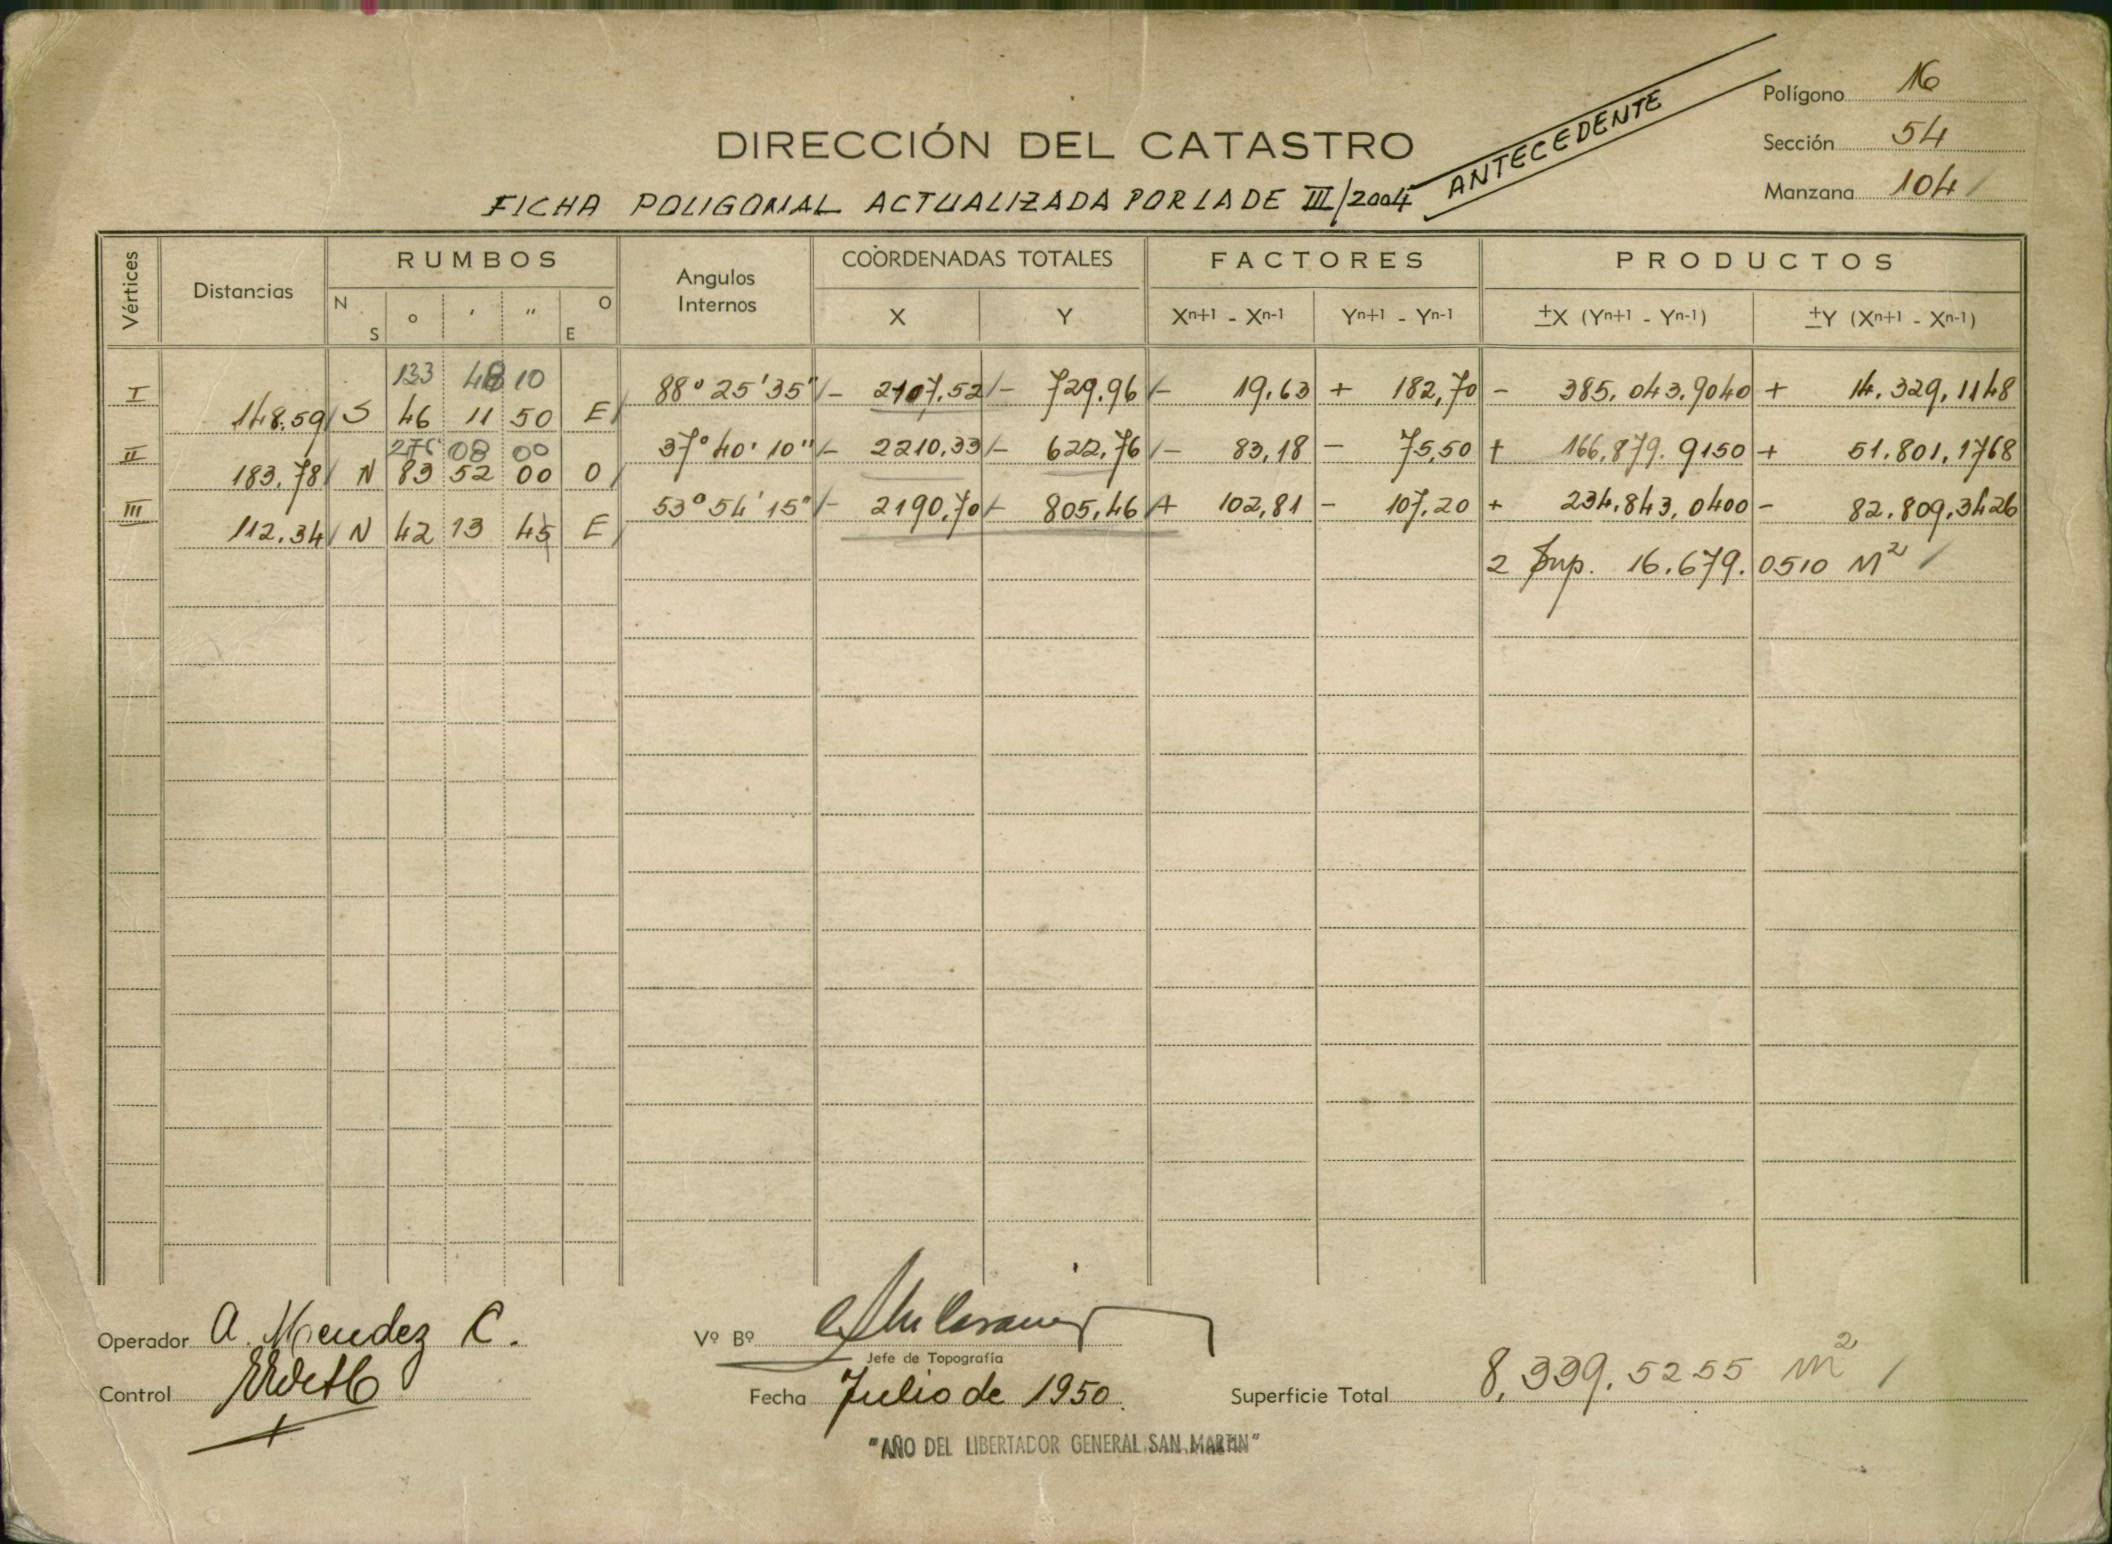 Polígono 16
DIRECCIÓN DEL CATASTRO
ANTECEDENTE
Sección 54
Manzana 104
FICHA POLIGONAL ACTUALIZADA POR LA DE III/2004
Vértices Distancias RUMBOS Angulos Internos COORDENADAS TOTALES FACTORES PRODUCTOS
N S ° ' " O E X Y Xn+1 - Xn-1 Yn+1 - Yn-1 ±X (Yn+1 - Yn-1) ±Y (Xn+1 - Xn-1)
133 48 10
I 88° 25' 35" - 2107,52 - 729,96 - 19,63 + 182,70 - 385.043,9040 + 14.329,1148
148,59 S 46 11 50 E
276 08 00
II 37° 40' 10" - 2210,33 - 622,76 - 83,18 - 75,50 + 166.879.9150 + 51.801,1768
183,78 N 83 52 00 O
III 53° 54' 15" - 2190,70 - 805,46 + 102,81 - 107,20 + 234.843,0400 - 82.809,3426
112,34 N 42 13 45 E
2 Sup. 16.679.0510 M²
Operador A. Mendez C.
Vº Bº
Jefe de Topografía
Control
Fecha Julio de 1950.
Superficie Total 8,339.5255 m²
"AÑO DEL LIBERTADOR GENERAL SAN MARTIN"